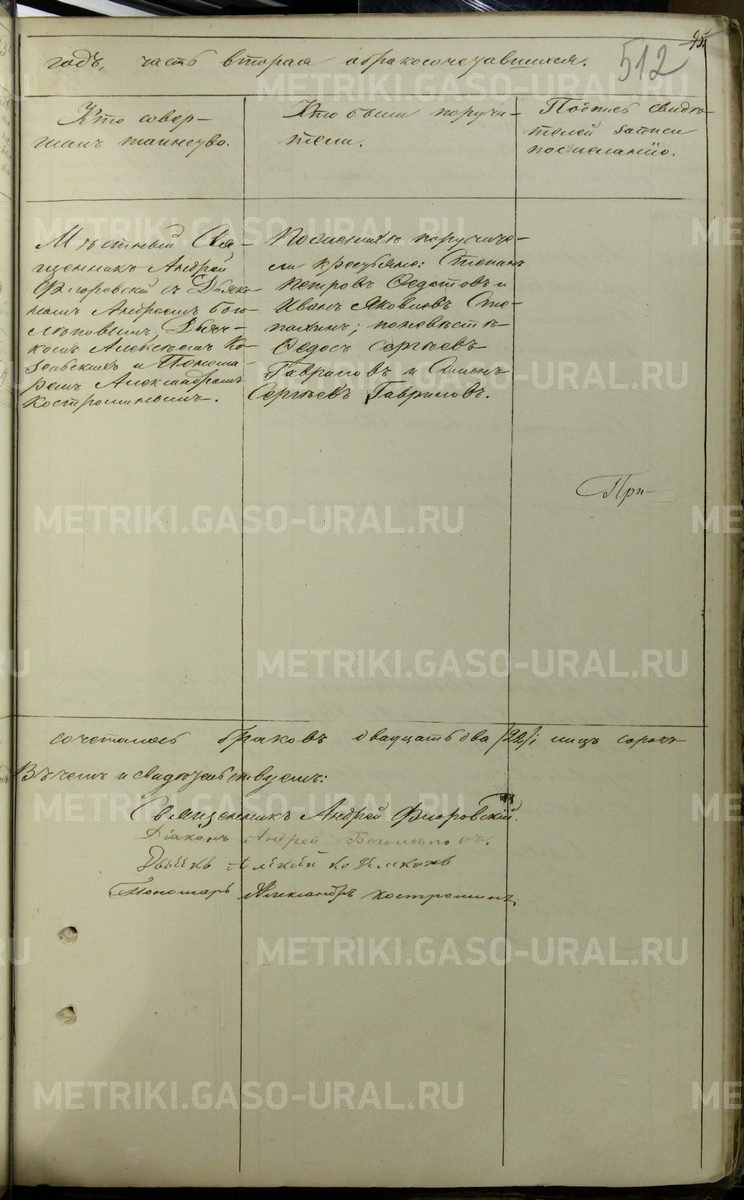 годъ, часть вторая о бракосочетавшихся.
512
Кто совер-
шалъ таинство.
Кто были поручи-
тели.
Подпись свидѣ-
телей записи
по желанію.
Мѣстный Свя-
щенникъ Андрей
Флоровскій съ Діяко-
номъ Андреемъ Бого-
лѣповымъ, Дьяч-
комъ Алексѣемъ Ко-
зельскимъ и Понома-
ремъ Александромъ
Костроминымъ.
По женихѣ поручите-
ли крестьяне: Степанъ
Петровъ Федотовъ и
Иванъ Яковлевъ Сте-
панинъ; по невѣстѣ
Федосъ Сергѣевъ
Гавриловъ и Семенъ
Сергѣевъ Гавриловъ.
При-
сочеталось браковъ двадцать два /22/; лицъ сорокъ
Въ чемъ и свидѣтельствуемъ:
Священникъ Андрей Флоровскій.
Діаконъ Андрей Боголѣповъ.
Дьячекъ Алексѣй
Пономарь Александръ Костроминъ
METRIKI.GASO-URAL.RU